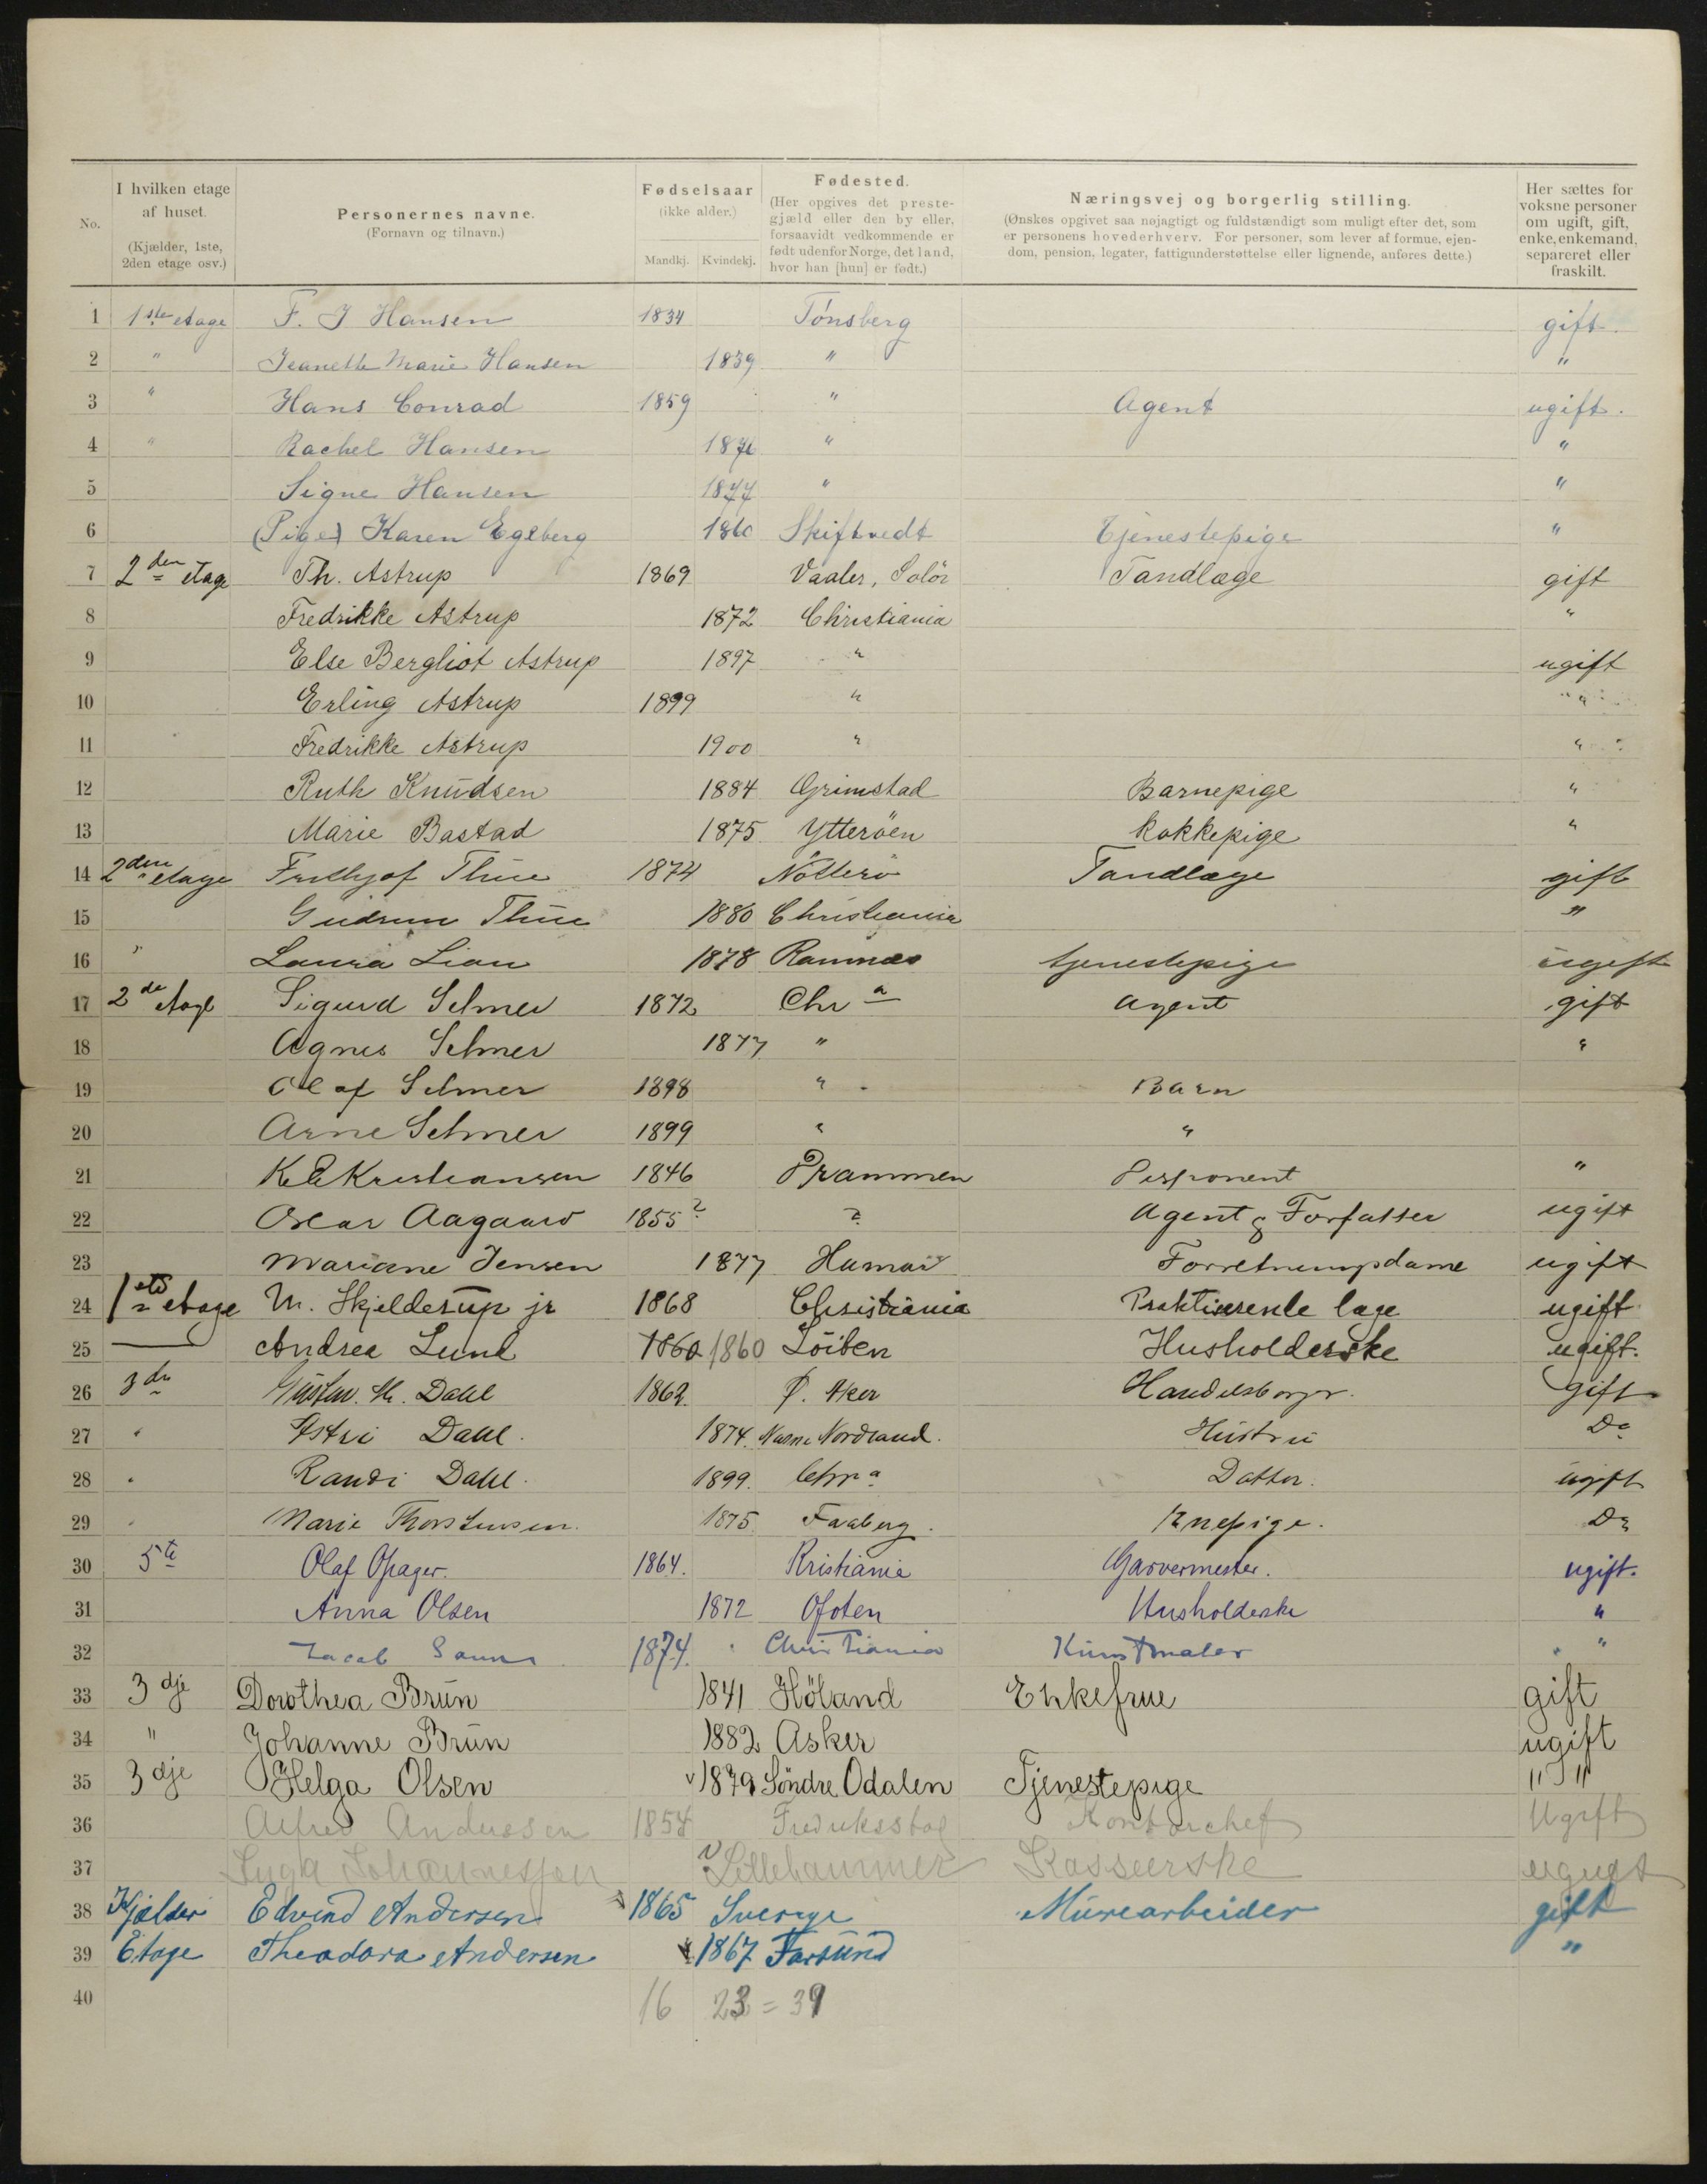 No.
I hvilken etage af huset. (Kjælder, 1ste, 2den etage osv.)
Personernes navne. (Fornavn og tilnavn.)
Fødselsaar (ikke alder.) Mandkj. Kvindekj.
Fødested. (Her opgives det prestegjæld eller den by eller, forsaavidt vedkommende er født udenfor Norge, det land, hvor han [hun] er født.)
Næringsvej og borgerlig stilling. (Ønskes opgivet saa nøjagtigt og fuldstændigt som muligt efter det, som er personens hovederhverv. For personer, som lever af formue, ejendom, pension, legater, fattigunderstøttelse eller lignende, anføres dette.)
Her sættes for voksne personer om ugift, gift, enke, enkemand, separeret eller fraskilt.
1 1ste etage F. J Hansen 1834 Tønsberg gift
2 " Jeanette Marie Hansen 1839 " "
3 " Hans Conrad 1859 " Agent ugift.
4 " Rachel Hansen " "
5 Signe Hansen 1877 " "
6 (Pige) Karen Egeberg 1860 Skiftvedt Tjenestepige "
7 2den etage Th. Astrup 1869 Vaaler, Solör Tandlæge gift
8 Fredrikke Astrup 1872 Christiania "
9 Else Bergliot Astrup 1897 " ugift
10 Erling Astrup 1899 " "
11 Fredrikke Astrup 1900 " "
12 Ruth Knudsen 1884 Grimstad Barnepige "
13 Marie Bastad 1875 Ytteröen Kokkepige "
14 2den etage Fridhjof Thue 1874 Nötterö Tandlæge gift
15 Gudrun Thue 1880 Christiania "
16 " Laura Lian 1878 Ramnæs tjenestepige ugift
17 2de etage Sigurd Selmer 1872 Chra Agent gift
18 Agnes Selmer 1877 " "
19 Olaf Selmer 1898 " Barn
20 Arne Selmer 1899 " "
21 K E Kristiansen 1846 Drammen Disponent "
22 Oscar Aagaard 1855? ? Agent & Forfatter ugift
23 Mariane Jensen 1877 Hamar Forretningsdame ugift
24 1ste etage M. Skjelderup jr 1868 Christiania Praktiserende læge ugift
25 Andrea Lund 1860 1860 Löiten Husholderske ugift.
26 3de Gustav. M. Dahl 1862. Ø. Aker Handelsborger. gift
27 " Astri Dahl. 1874. Nordland. Hustru Do
28 " Randi Dahl. 1899. Chra Datter. ugift
29 " Marie Thorstensen. 1875. Faaberg. Enepige. Do
30 5te Olaf Opager. 1864. Kristiania Garvermester. ugift.
31 Anna Olsen 1872 Ofoten Husholderske "
32 Jacob 1874. Christiania Kunstmaler "
33 3dje Dorothea Brun 1841 Höland Enkefrue gift
34 " Johanne Brun 1882 Asker ugift
35 3dje Helga Olsen 1879 Söndre Odalen Tjenestepige " "
36 Alfred Anderssen 1854 Fredriksstad Kontorchef Ugift
37 Johannessen Lillehammer Kasserske ugift
38 Kjælder Edvind Andersen 1865 Sverige Murearbeider gift
39 Etage Theodora Andersen 1867 Farsund "
40 16 23 = 39